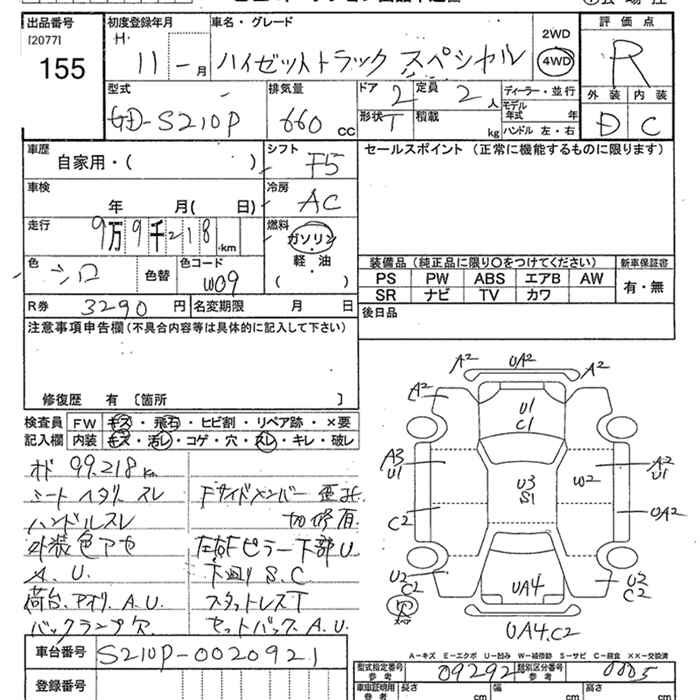 出品番号 初度登録年月 車名・グレード 評価点
[2077]
155
H. 11 - 月 ハイゼットトラック スペシャル 2WD 4WD R
型式 排気量 ドア 2 定員 2 人 ディーラー・並行 外装 内装
GD-S210P 660 cc 形状 T 積載 kg モデル年式 年 D C
ハンドル 左・右
車歴 シフト セールスポイント(正常に機能するものに限ります)
自家用・( ) F5
車検 冷房
年 月( 日) AC
走行 燃料
9万9千218km ガソリン
軽・油
( )
色 シロ 色替 色コード W09
装備品(純正品に限り○をつけてください) 新車保証書
PS PW ABS エアB AW 有・無
SR ナビ TV カワ
R券 3290 円 名変期限 月 日 後日品
注意事項申告欄(不具合内容等は具体的に記入して下さい)
修復歴 有 [箇所 ]
検査員 FW キズ・飛石・ヒビ割・リペア跡・×要
記入欄 内装 キズ・汚レ・コゲ・穴・スレ・キレ・破レ
99,218 Km
シートヘタリ スレ Fサイドメンバー
ハンドルスレ 切修有
外装色アセ 左右Fピラー下部U
A.U. 下廻りS.C
荷台、アオリ A.U. スタットレスT
バックランプ穴 セットバックA.U
A2 UA2 A2
A2 A2
U1
C1
A3
U1 A2
U1
U3
S1 W2
C2 UA2
U2
C2 U2
C2
UA4
UA4.C2
車台番号 S210P-0020921
登録番号
A-キズ E-エクボ U-凹み W-補修跡 S-サビ C-腐食 XX-交換済
型式指定番号 参考 09292 類別区分番号 参考 0005
車庫証明用 参考 長さ cm 幅 cm 高さ cm